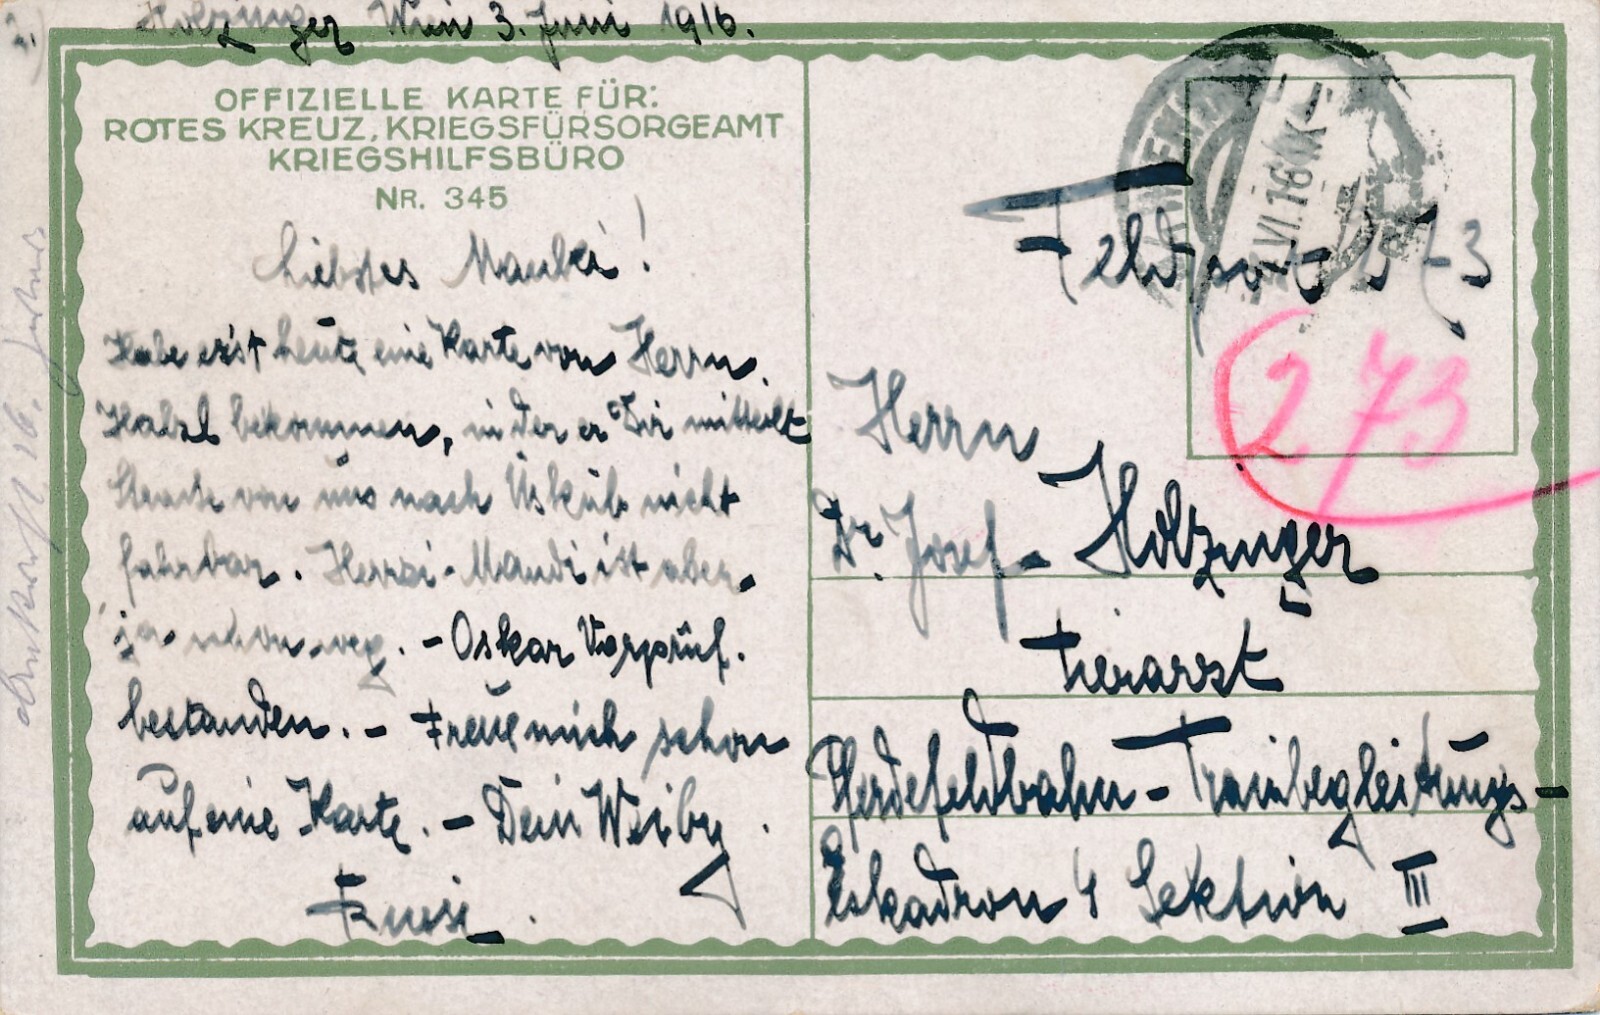 Holzinger Wien 3. Juni 1916.
OFFIZIELLE KARTE FÜR:
ROTES KREUZ, KRIEGSFÜRSORGEAMT
KRIEGSHILFSBÜRO
NR. 345
Liebstes Mauki!
Habe erst heute eine Karte von Herrn
Habel bekommen, in der er Dir mitteilt
Strecke von uns nach Üsküb nicht
fahrbar. Herzi-Maudi ist aber
ja schon weg. - Oskar Vorprüf.
bestanden. - Freue mich schon
auf eine Karte. - Dein Weiby
Feldpost
273
Herrn
Dr. Josef Holzinger
Tierarzt
Pferdefeldbahn-Trainbegleitungs-
Eskadron 4 Sektion III